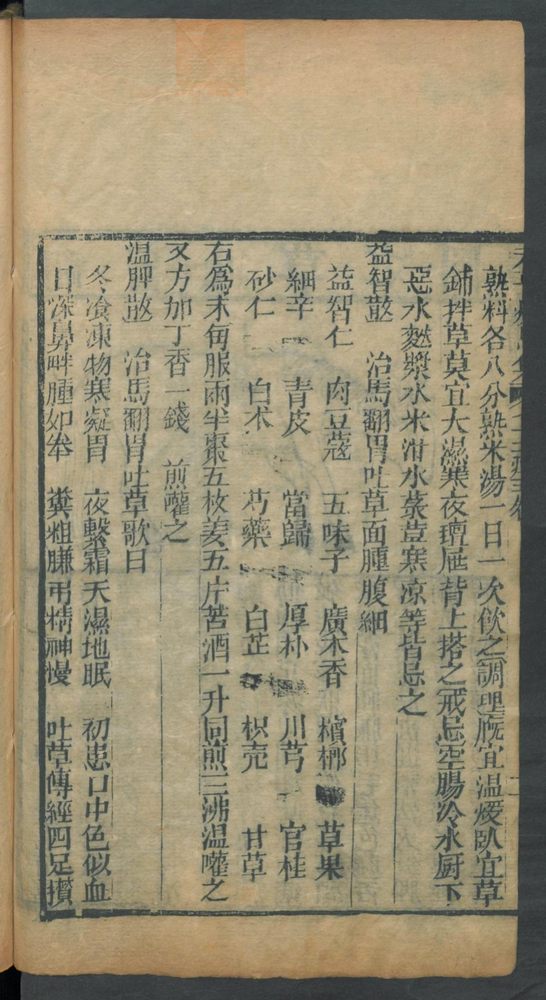 熟料各八分熟米湯一日一次飲之調理廐宜温煖臥宜草
鋪拌草莫宜大濕寒夜氊屉背上搭之戒忌空腸冷水厨下
惡水麩漿水米泔水菉荳寒凉等皆忌之
益智散 治馬翻胃吐草面腫腹細
益智仁 肉豆蔻 五味子 廣木香 檳榔 草果
細辛 青皮 當歸 厚朴 川芎 官桂
砂仁 白术 芍藥 白芷 枳売 甘草
右爲末每服兩半棗五枚姜五片苦酒一升同煎三沸温嚾之
又方加丁香一錢 煎嚾之
温脾散 治馬翻胃吐草歌曰
冬飡凍物寒凝胃 夜繫霜天濕地眠 初患口中色似血
日深鼻畔腫如拳 糞粗賺弔精神慢 吐草傳經四足攢